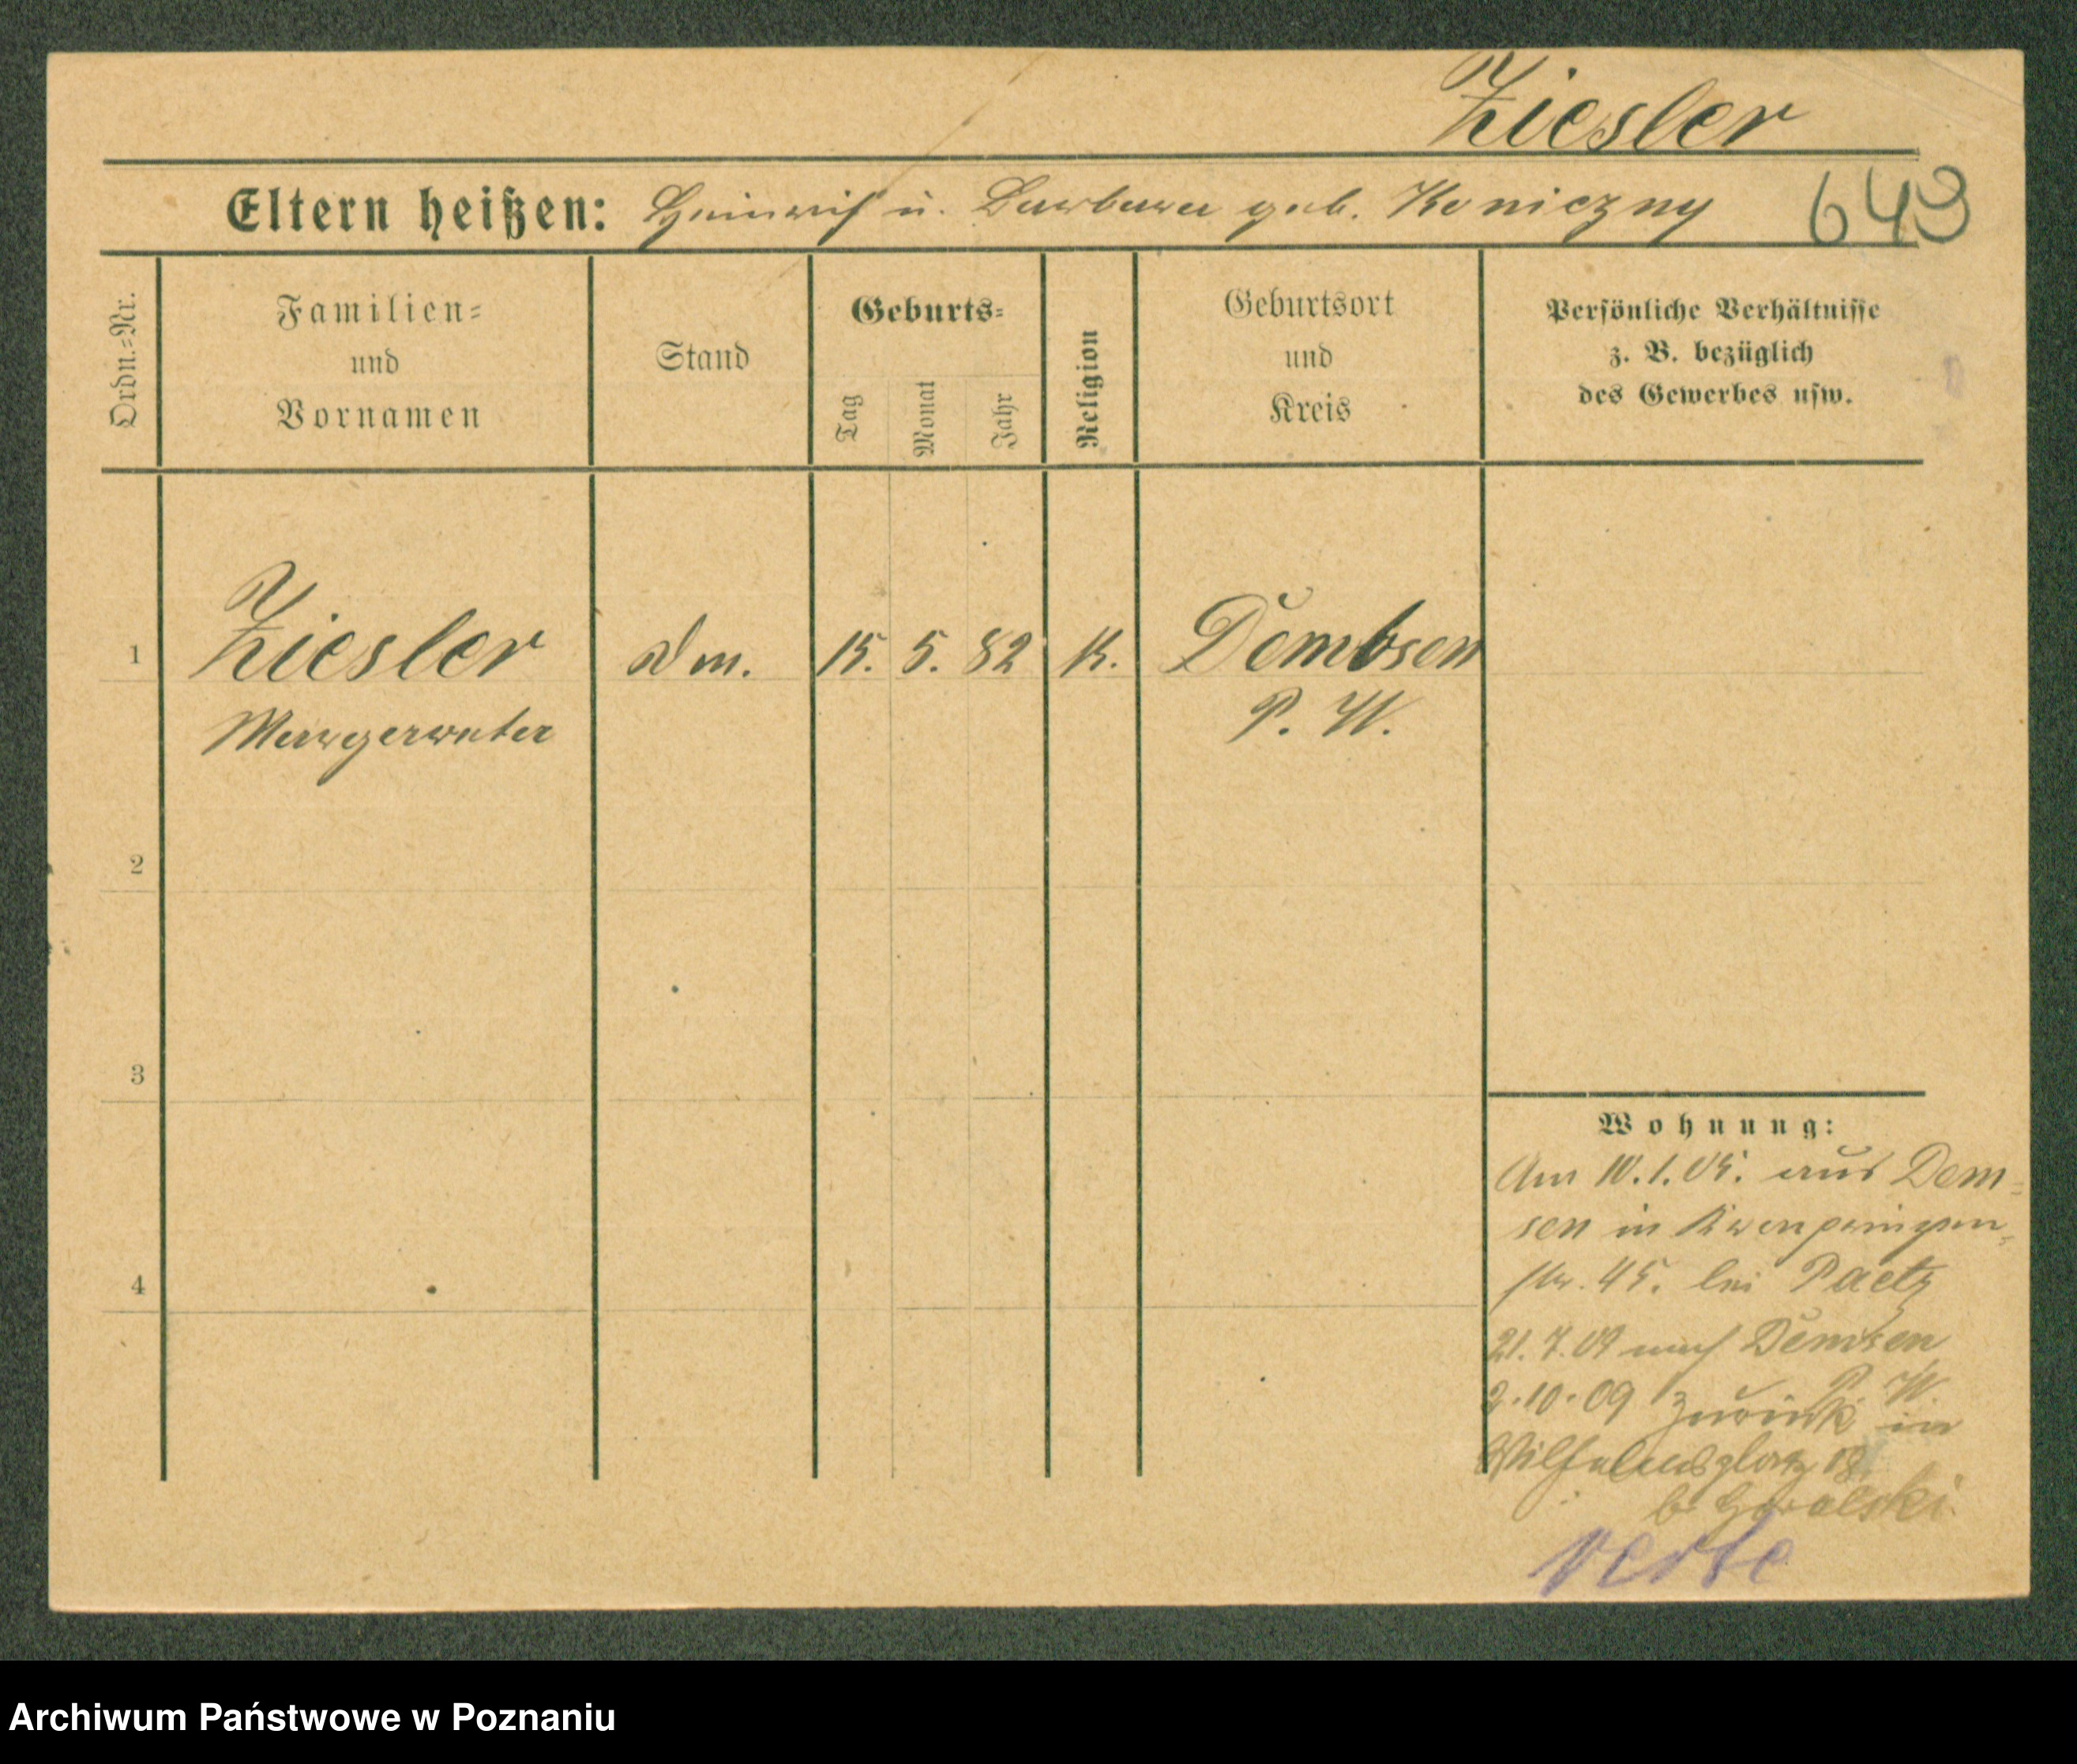 Ziesler
Eltern heißen: Heinrich u. Barbara geb. Koniczny 643
Ordn.=Nr.
Familien=
und
Vornamen
Stand
Geburts=
Tag
Monat
Jahr
Religion
Geburtsort
und
Kreis
Persönliche Verhältnisse
z. B. bezüglich
des Gewerbes usw.
1 Ziesler Dm. 15. 5. 82 K. Dembsen
Margareete P. W.
2
3
4
Wohnung:
Am 10.1.05. aus Dem-
sen in Kronprinzen-
str. 45. bei Paetz
21.7.09 nach Demsen
P. W.
2.10.09 zurück in
Wilhelmsplatz 18.
b. Goralski
verte
Archiwum Państwowe w Poznaniu